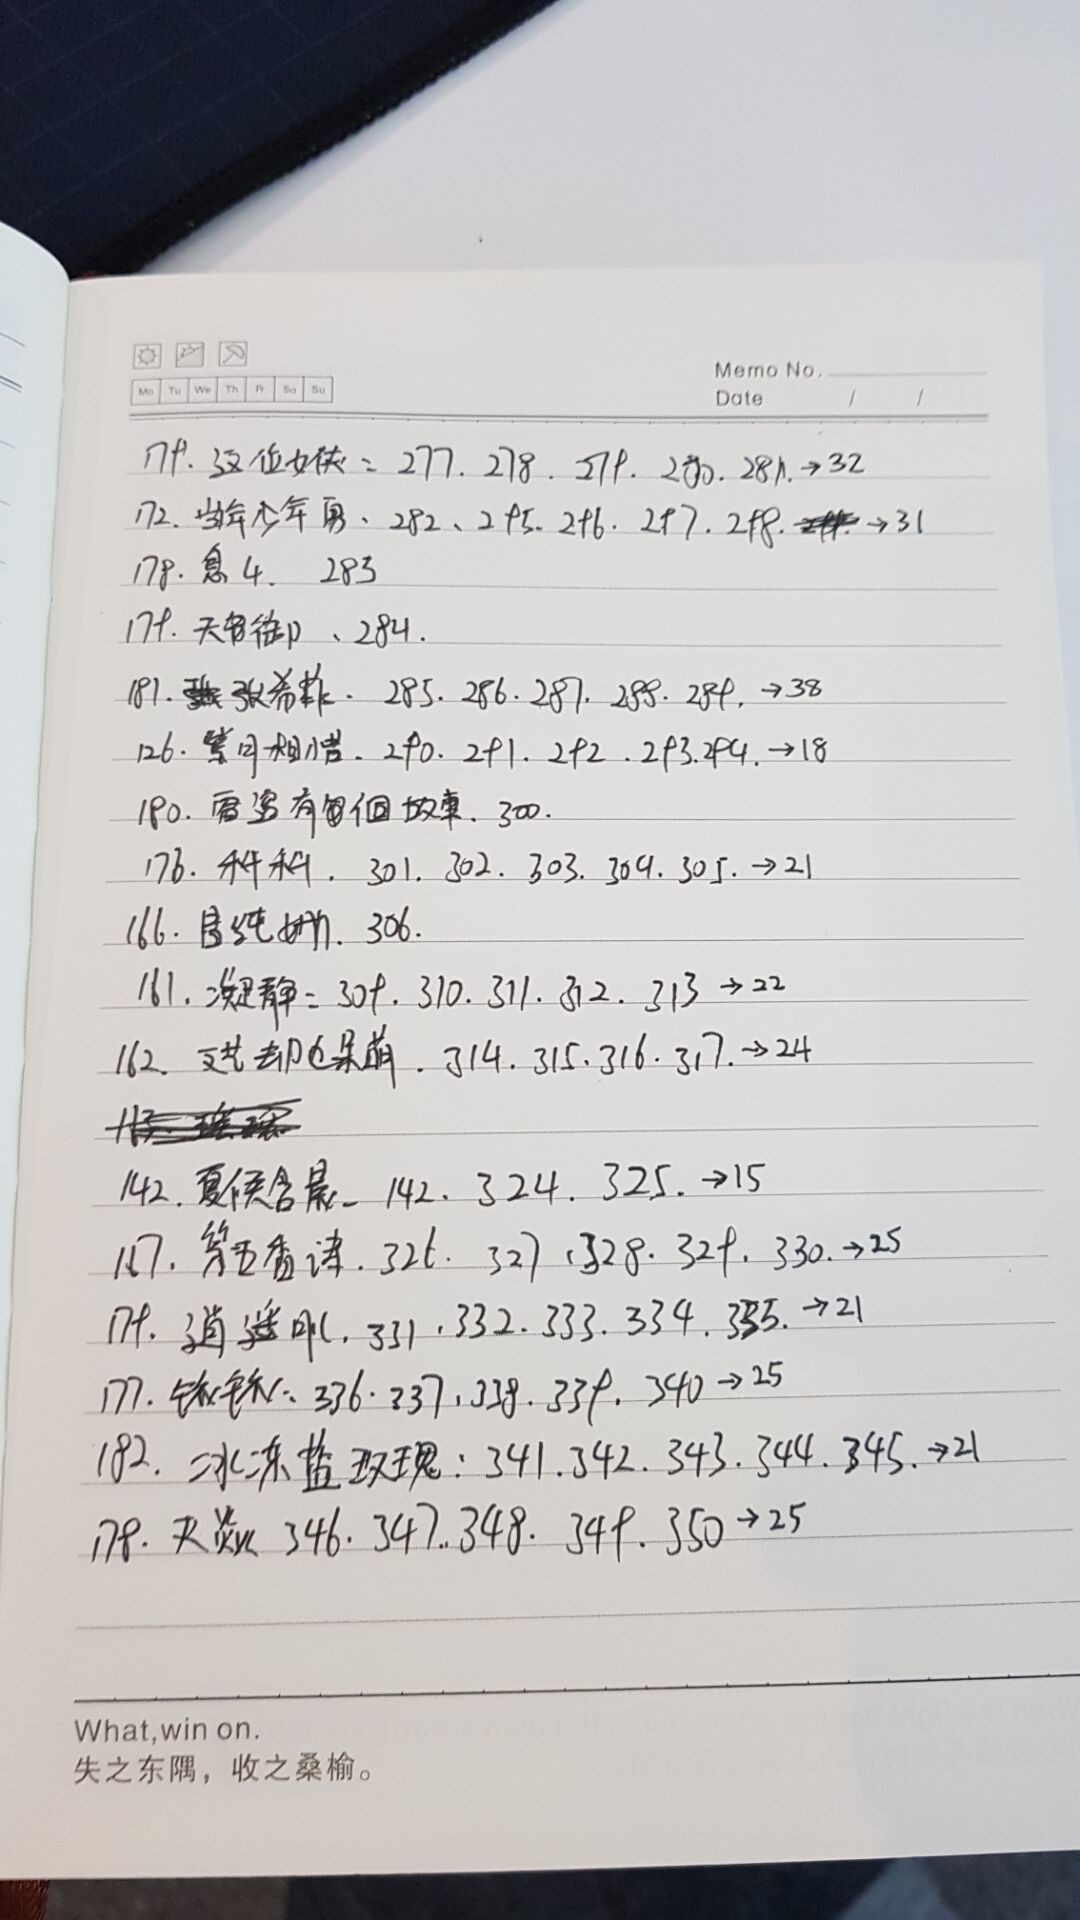 Mo Tu We Th Fr Sa Su
Memo No.
Date / /
179. 这位女侠: 277. 278. 279. 280. 281. →32
172. 当年少年勇、282、295. 296. 297. 298. →31
178. 息4. 283
179. 天智御、284.
181. 张希 285. 286. 287. 288. 289. →38
126. 相惜. 290. 291. 292. 293. 294. →18
180. 有個故事. 300.
176. 科科. 301. 302. 303. 304. 305. →21
166. 306.
161. 凝静: 309. 310. 311. 312. 313 →22
162. 文艺却也呆萌. 314. 315. 316. 317. →24
142. 夏侯含 142. 324. 325. →15
167. 第五香 326. 327. 328. 329. 330. →25
179. 逍遥 331. 332. 333. 334. 335. →21
177. 336. 337. 338. 339. 340 →25
182. 冰冻蓝玫瑰: 341. 342. 343. 344. 345. →21
178. 天 346. 347. 348. 349. 350 →25
What,win on.
失之东隅，收之桑榆。